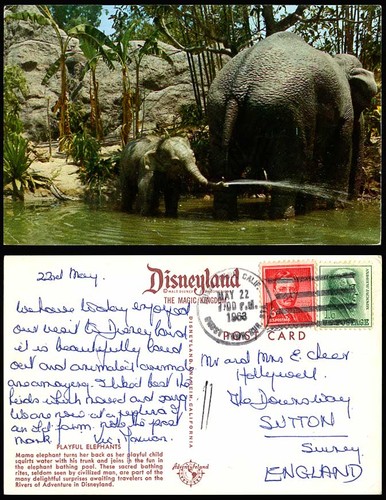 22nd May.
We have today enjoyed
our visit to Disneyland
it is beautifully laid
out and animated animals
are amazing. I liked best the
birds which moved and sang.
We are now at a replica of
an old farm. note the post
mark
PLAYING ELEPHANTS
Mama elephant turns her back as her playful child
squirts water with his trunk and joins in the fun in
the elephant bathing pool. These sacred bathing
sites, seldom seen by civilized man, are among the
many delightful surprises awaiting travelers on the
Rivers of Adventure in Disneyland.
Disneyland
THE MAGIC KINGDOM
DISNEYLAND, ANAHEIM, CALIFORNIA
Adventureland
POST CARD
CALIF.
MAY 22
PM
1968
POSTAGE
Mr and Mrs E. Clear
Hollywell.
The Downsway
SUTTON
Surrey.
ENGLAND